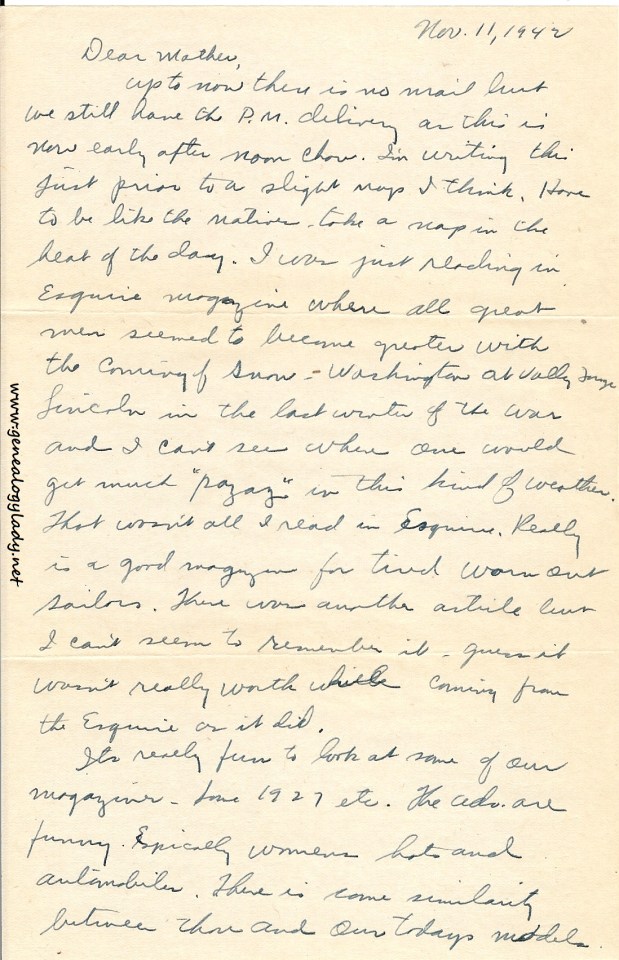 Nov. 11, 1942
Dear Mother,
Up to now there is no mail but
we still have the P.M. delivery as this is
now early after noon chow. I'm writing this
just prior to a slight nap I think. Have
to be like the natives - take a nap in the
heat of the day. I was just reading in
Esquire magazine where all great
men seemed to become greater with
the coming of snow - Washington at Valley Forge
Lincoln in the last winter of the war
and I can't see where one would
get much "pazaz" in this kind of weather.
That wasn't all I read in Esquire. Really
is a good magazine for tired worn out
sailors. There was another article but
I can't seem to remember it - guess it
wasn't really worth while coming from
the Esquire as it did.
Its really fun to look at some of our
magazines - some 1927 etc. The adv. are
funny. Espically womens hats and
automobiles. There is some similarity
between those and our todays models.
www.genealogylady.net